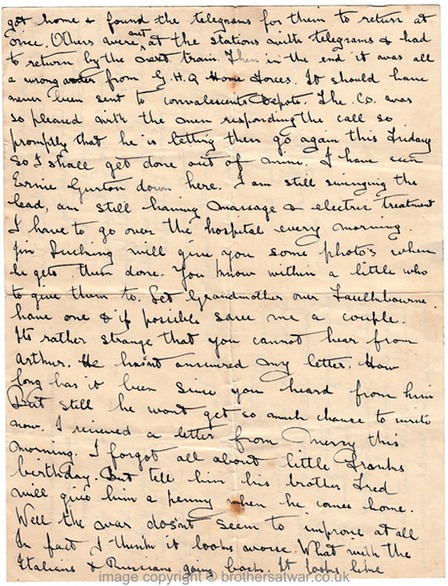 got home & found the telegrams for them to return at
once. Others were met at the stations with telegrams & had
to return by the next train. Then in the end it was all
a wrong order from G.H.Q Home Forces. It should have
never been sent to convalescents Depots. The Co. was
so pleased with the men responding the call so
promptly that he is letting them go again this Friday
so I shall get done out of mine. I have seen
Ernie Gurton down here. I am still swinging the
lead, am still having massage & electric treatment
I have to go over the hospital every morning.
Jim Lucking will give you some photos when
he gets them done. You know within a little who
to give them to. Let Grandmother over Faulkbourne
have one & if possible save me a couple.
Its rather strange that you cannot hear from
Arthur. He hasnt answered my letter. How
long has it been since you heard from him
But still he wont get so much chance to write
now. I recieved a letter from Merry this
morning. I forgot all about little Franks
berthday. But tell him his brother Fred
will give him a penny when he comes home.
Well the war doesnt seem to improve at all
In fact I think it looks worse. What with the
Italians & Russians going back. It looks like
image copyright © brothersatwar.co.uk